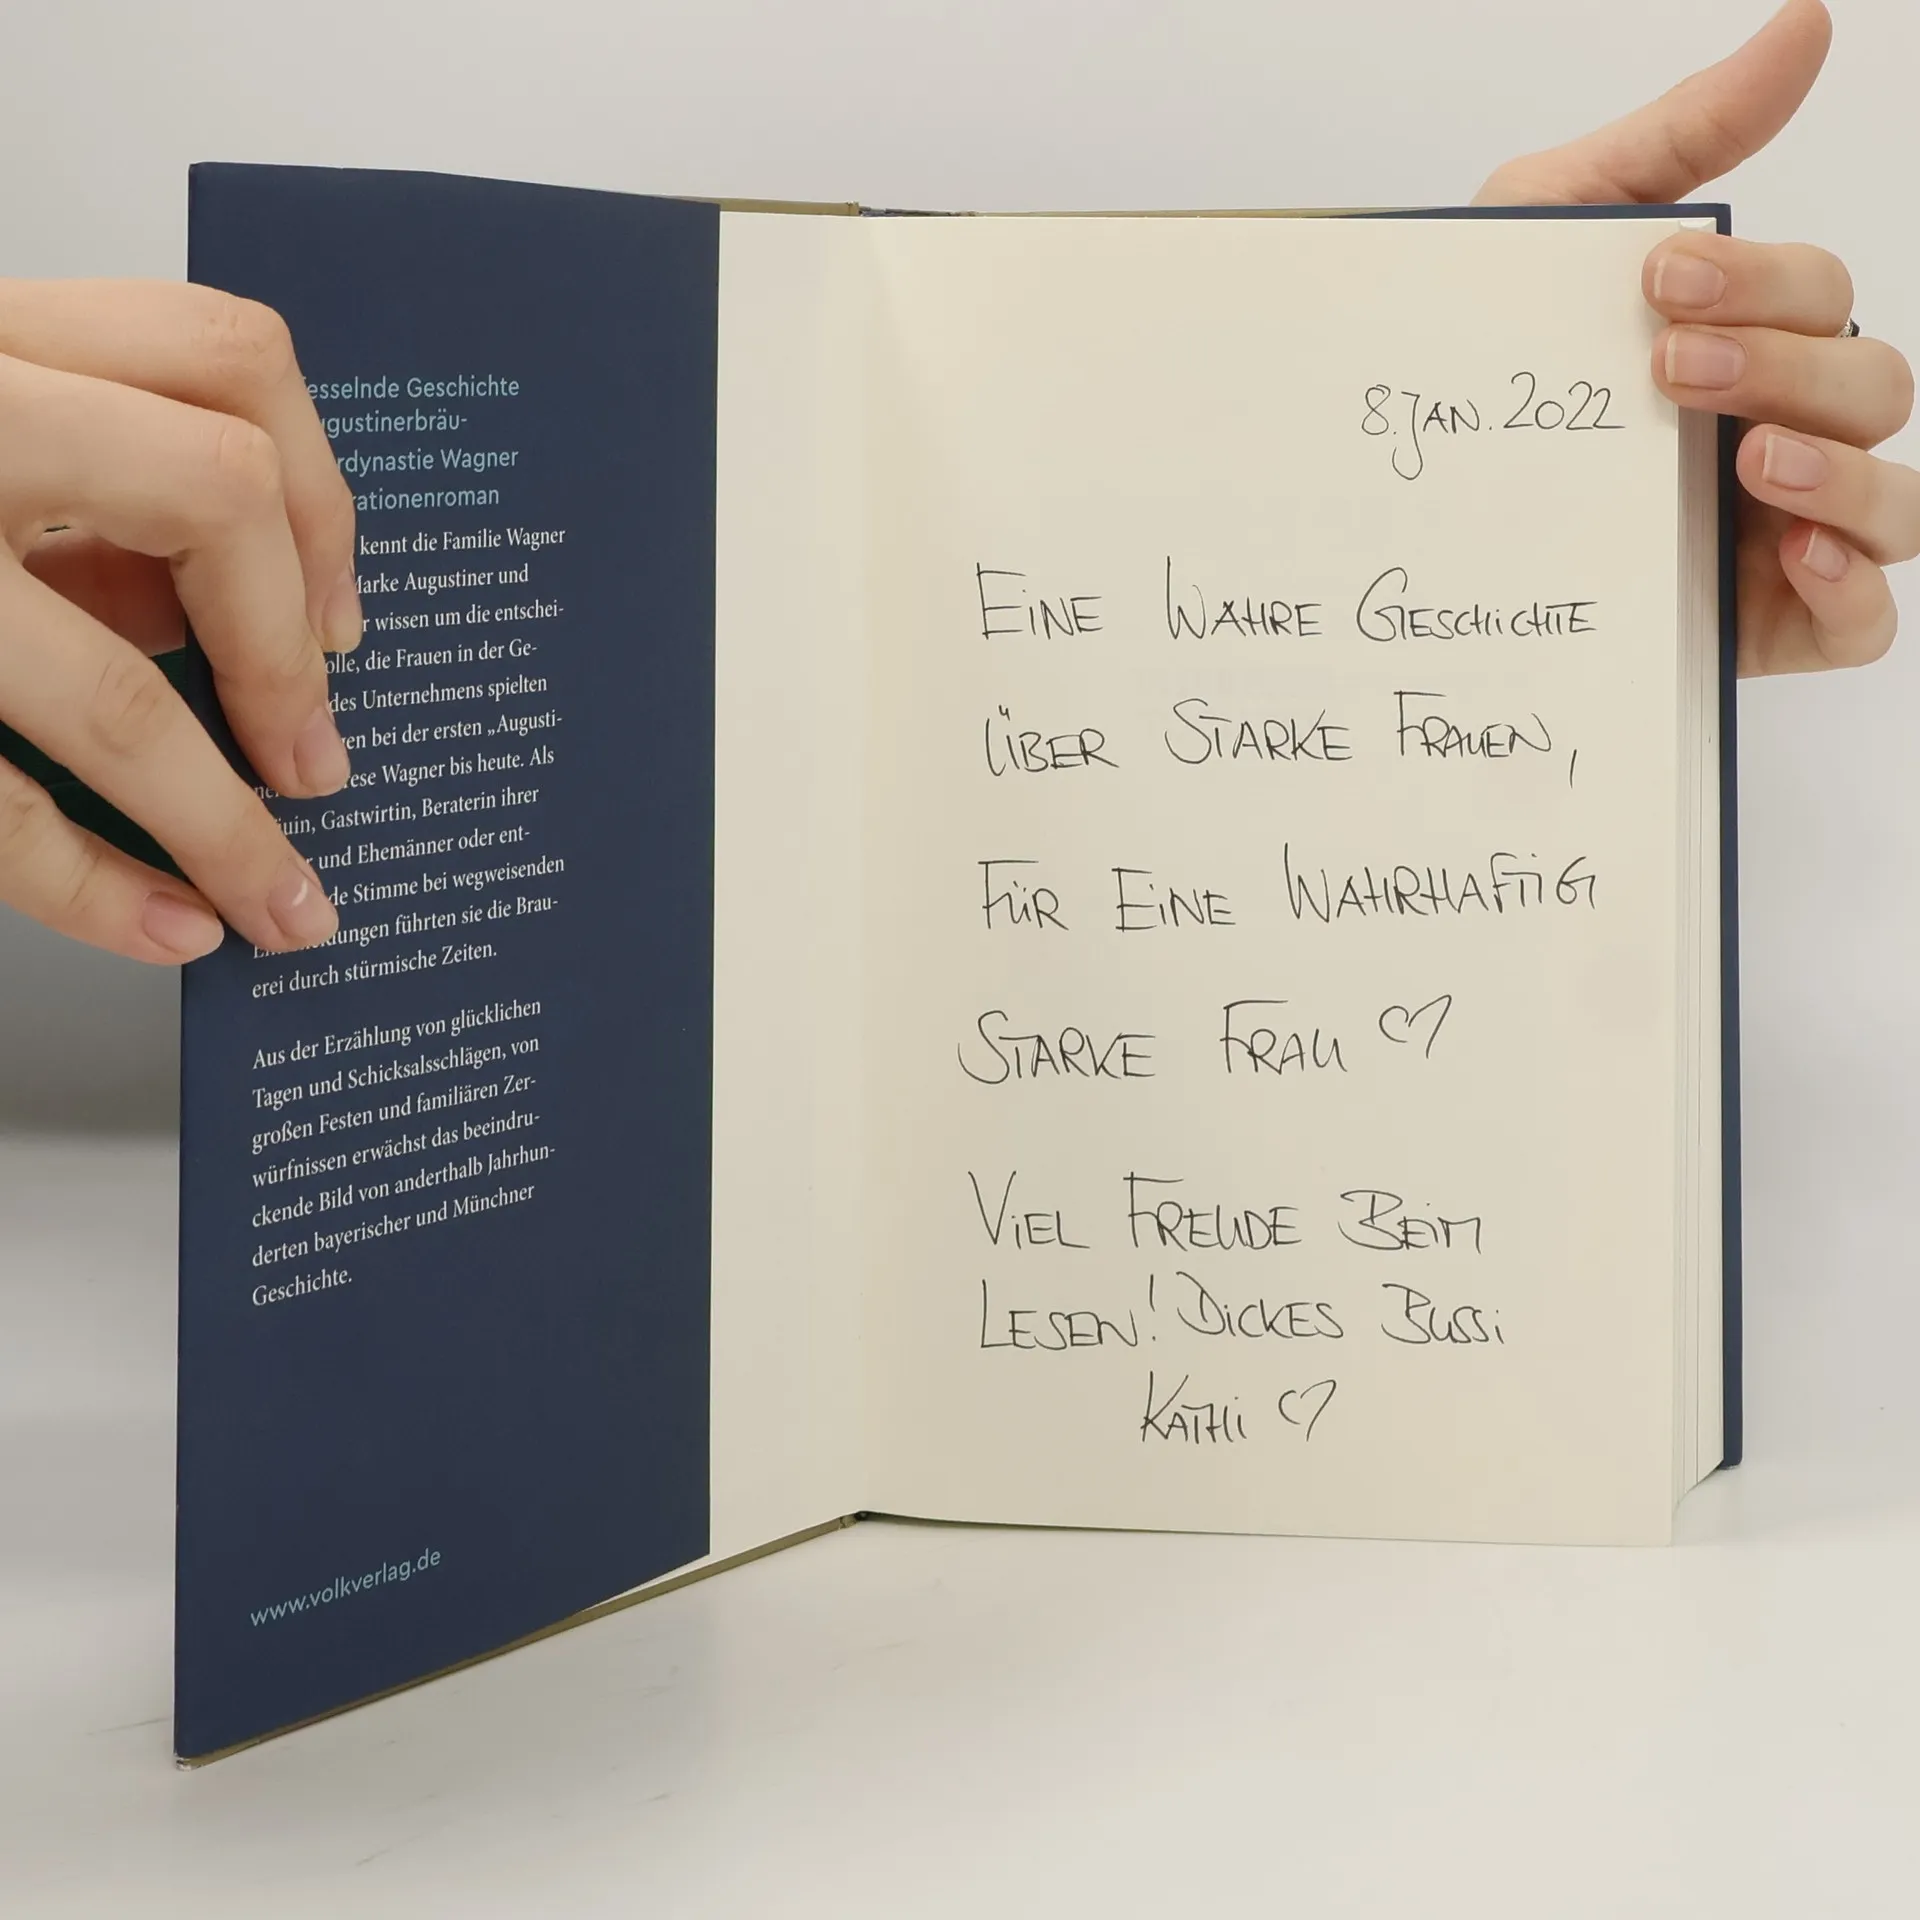 esselnde Geschichte
gustinerbräu-
rdynastie Wagner
rationenroman
kennt die Familie Wagner
arke Augustiner und
r wissen um die entschei-
olle, die Frauen in der Ge-
des Unternehmens spielten
en bei der ersten „Augusti-
ese Wagner bis heute. Als
uin, Gastwirtin, Beraterin ihrer
r und Ehemänner oder ent-
de Stimme bei wegweisenden
dungen führten sie die Brau-
erei durch stürmische Zeiten.
Aus der Erzählung von glücklichen
Tagen und Schicksalsschlägen, von
großen Festen und familiären Zer-
würfnissen erwächst das beeindru-
ckende Bild von anderthalb Jahrhun-
derten bayerischer und Münchner
Geschichte.
www.volkverlag.de
8. JAN. 2022
EINE WAHRE GESCHICHTE
ÜBER STARKE FRAUEN,
FÜR EINE WAHRHAFTIG
STARKE FRAU ♡
VIEL FREUDE BEIM
LESEN! DICKES BUSSI
KATHI ♡